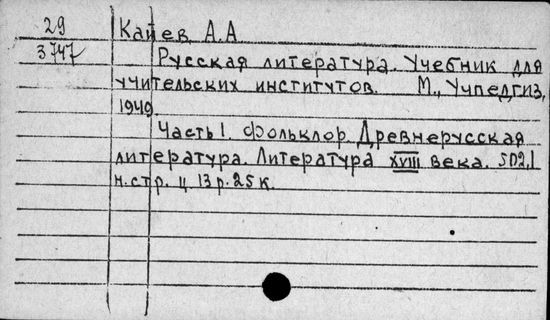 29
3747
Кайев А.А
Русская литература. Учебник для
учительских институтов. М., Учпедгиз,
1949
Часть I. Фольклор. Древнерусская
литература. Литература XVIII века. 502,1
н.стр. ц 13 р. 25 к.